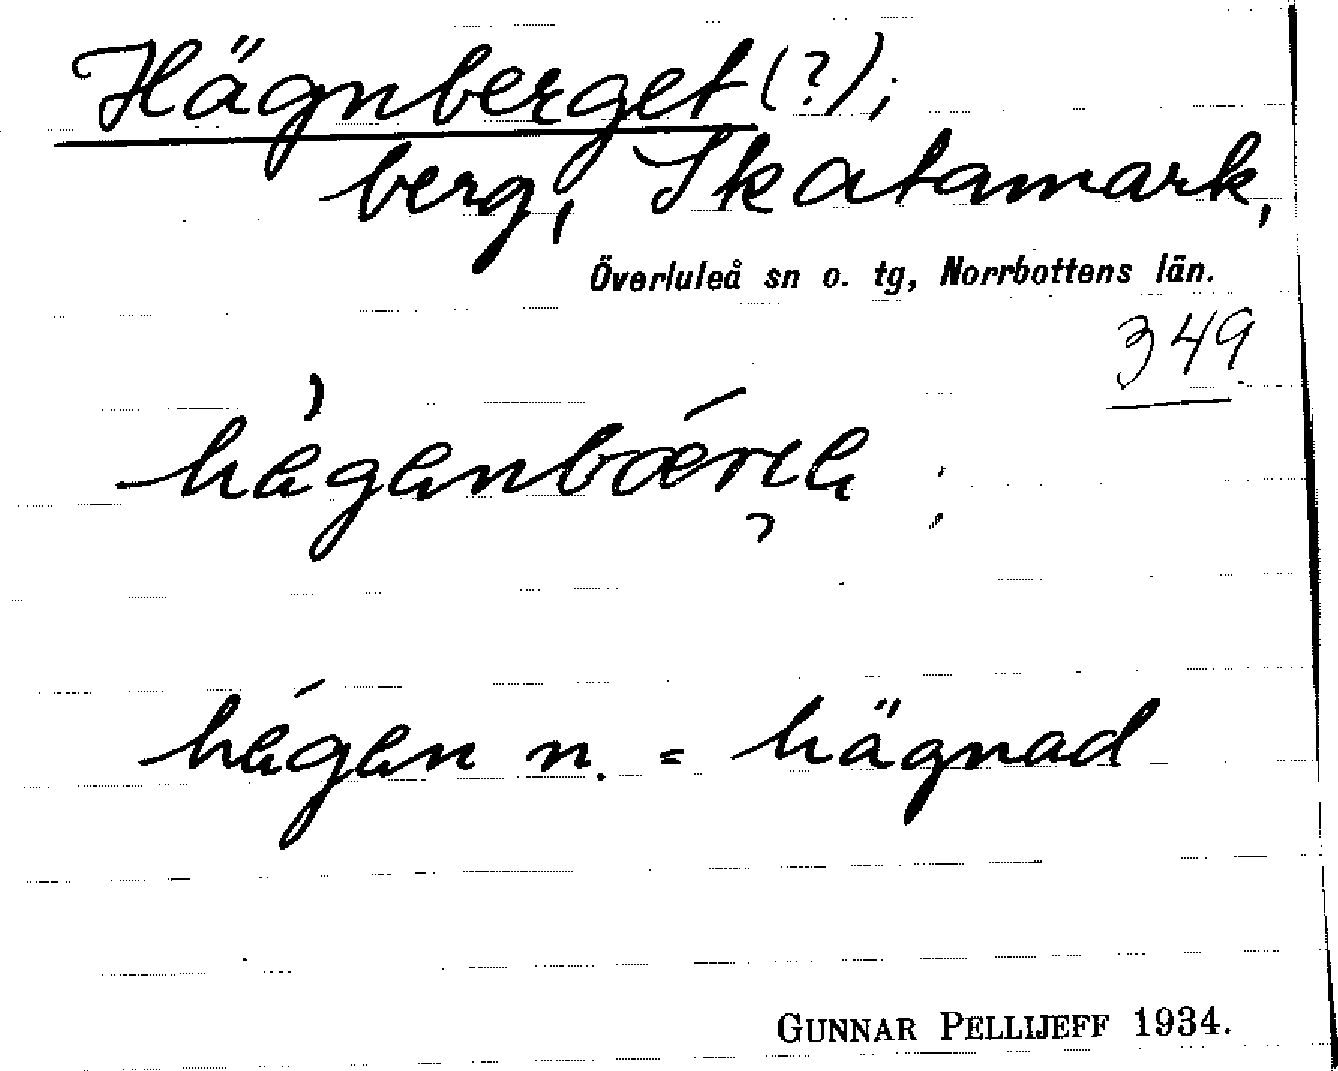 Hägnberget (?);
berg, Skatamark,
Överluleå sn o. tg, Norrbottens län.
349
hägan n. = hägnad
GUNNAR PELLIJEFF 1934.